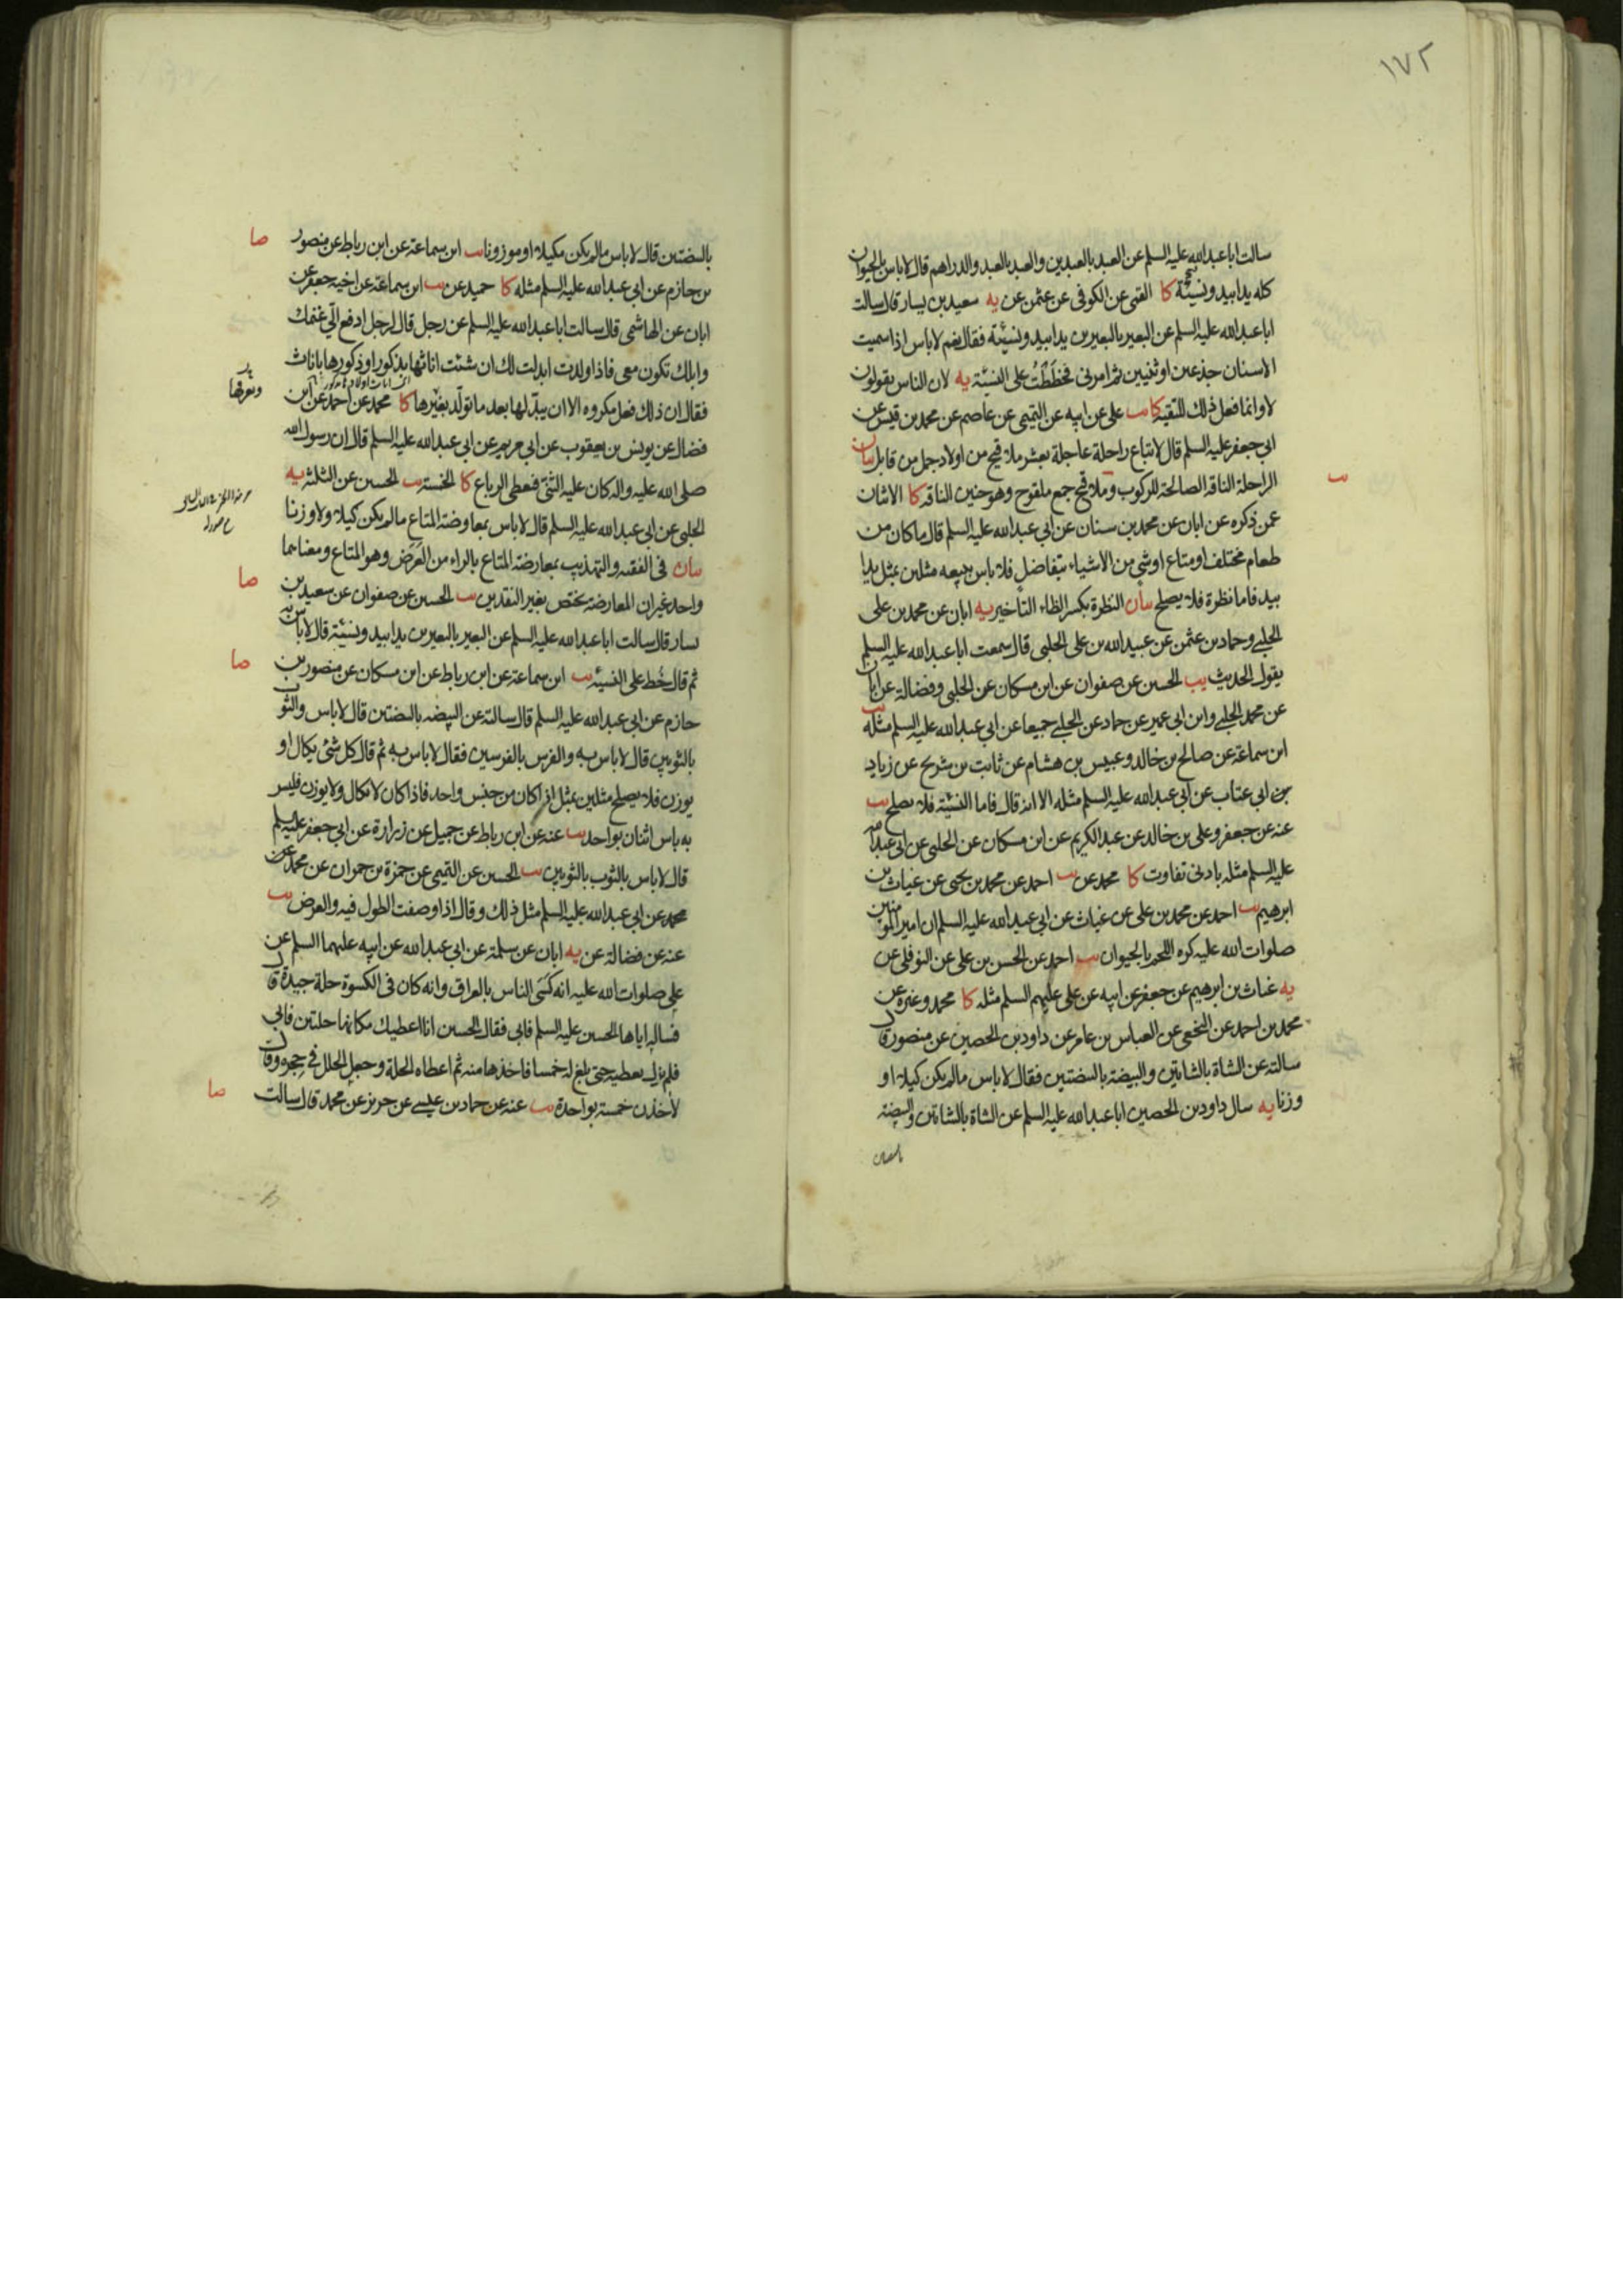 ١٧٢
سالت ابا عبد الله عليه السلم عن العبد بالعبدين والعبد بالعبد والدراهم قال لا باس بالحيوان
كله يدا بيد ونسيئة كا القمي عن الكوفي عن عثمن عن يه سعيد بن يسار قال سالت
ابا عبد الله عليه السلم عن البعير بالبعيرين يدا بيد ونسيئة فقال نعم لا باس اذا سميت
الاسنان جذعين او ثنيين ثم امرني فخططت على النسيئة يه لان الناس يقولون
لا وانما فعل ذلك للتقية كا يب علي عن ابيه عن التميمي عن عاصم عن محمد بن قيس عن
ابي جعفر عليه السلم قال لا تباع راحلة عاجلة بعشر ملاقيح من اولاد جمل من قابل بيان
الراحلة الناقه الصالحة للركوب وملاقيح جمع ملقوح وهو جنين الناقه كا الاثنان
يب
عمن ذكره عن ابان عن محمد بن سنان عن ابي عبد الله عليه السلم قال ما كان من
طعام مختلف او متاع او شيء من الاشياء يتفاضل فلا باس ببيعه مثلين بمثل يدا
بيد فاما نظرة فلا يصلح بيان النظرة بكسر الظاء التاخير يه ابان عن محمد بن علي
الحلبي وحماد بن عثمن عن عبيد الله بن علي الحلبي قال سمعت ابا عبد الله عليه السلم
يقول الحديث يب الحسين عن صفوان عن ابن مسكان عن الحلبي وفضالة عن ابان
عن محمد الحلبي وابن ابي عمير عن حماد عن الحلبي جميعا عن ابي عبد الله عليه السلم مثله يب
ابن سماعة عن صالح بن خالد وعبيس بن هشام عن ثابت بن شريح عن زياد
بن ابي عتاب عن ابي عبد الله عليه السلم مثله الا انه قال فاما النسيئة فلا يصلح يب
عنه عن جعفر وعلي بن خالد عن عبد الكريم عن ابن مسكان عن الحلبي عن ابي عبد الله
عليه السلم مثله بادنى تفاوت كا محمد عن يب احمد عن محمد بن يحيى عن غياث بن
ابرهيم يب احمد عن محمد بن علي عن غياث عن ابي عبد الله عليه السلم ان امير المؤمنين
صلوات الله عليه كره اللحم بالحيوان يب احمد عن الحسن بن علي عن النوفلي عن
يه غياث بن ابرهيم عن جعفر عن ابيه عن علي عليهم السلم مثله كا محمد وغيره عن
محمد بن احمد عن النخعي عن العباس بن عامر عن داود بن الحصين عن منصور قال
سالته عن الشاة بالشاتين والبيضة بالبيضتين فقال لا باس مالم يكن كيلا او
وزنا يه سال داود بن الحصين ابا عبد الله عليه السلم عن الشاة بالشاتين والبيضة
بالبيضتين
بالبيضتين قال لا باس مالم يكن مكيلا او موزونا يب ابن سماعة عن ابن رباط عن منصور
صا
بن حازم عن ابي عبد الله عليه السلم مثله كا حميد عن يب ابن سماعة عن اخيه جعفر عن
ابان عن الهاشمي قال سالت ابا عبد الله عليه السلم عن رجل قال لرجل ادفع الي غنمك
وابلك تكون معي فاذا ولدت ابدلت لك ان شئت اناثها بذكور او ذكورها باناث
فقال ان ذلك فعل مكروه الا ان يبدلها بعد ما تولد بغيرها كا محمد عن احمد عن ابن
ويعرفها
فضال عن يونس بن يعقوب عن ابي مريم عن ابي عبد الله عليه السلم قال ان رسول الله
صلى الله عليه واله كان عليه الثني فيعطي الرباع كا الخمسة يب الحسين عن الثلثة يه
الحلبي عن ابي عبد الله عليه السلم قال لا باس بمعاوضة المتاع مالم يكن كيلا ولا وزنا
بيان في الفقيه والتهذيب بمعارضة المتاع بالراء من العرض وهو المتاع ومعناهما
واحد غير ان المعارضة يختص بغير النقدين يب الحسين عن صفوان عن سعيد بن
صا
يسار قال سالت ابا عبد الله عليه السلم عن البعير بالبعيرين يدا بيد ونسيئة قال لا باس به
ثم قال خط على النسيئة يب ابن سماعة عن ابن رباط عن ابن مسكان عن منصور بن
صا
حازم عن ابي عبد الله عليه السلم قال سالته عن البيضه بالبيضتين قال لا باس والثوب
بالثوبين قال لا باس به والفرس بالفرسين فقال لا باس به ثم قال كل شيء يكال او
يوزن فلا يصلح مثلين بمثل اذا كان من جنس واحد فاذا كان لا يكال ولا يوزن فليس
به باس اثنان بواحد يب عنه عن ابن رباط عن جميل عن زرارة عن ابي جعفر عليه السلم
قال لا باس بالثوب بالثوبين يب الحسين عن التميمي عن حمزة بن حمران عن محمد عن
محمد عن ابي عبد الله عليه السلم مثل ذلك وقال اذا وصفت الطول فيه والعرض يب
عنه عن فضالة عن يه ابان عن سلمة عن ابي عبد الله عن ابيه عليهما السلم عن
علي صلوات الله عليه انه كسى الناس بالعراق وانه كان في الكسوة حلة جيدة قال
فساله اياها الحسين عليه السلم فابى فقال الحسين انا اعطيك مكانها حلتين فابى
فلم يزل يعطيه حتى بلغ له خمسا فاخذها منه ثم اعطاه الحلة وجعل الحلل في حجره وقال
لاخذن خمسة بواحدة يب عنه عن حماد بن عيسى عن حريز عن محمد قال سالت
صا